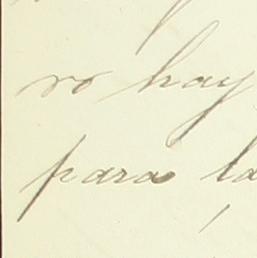 ro hay
para la